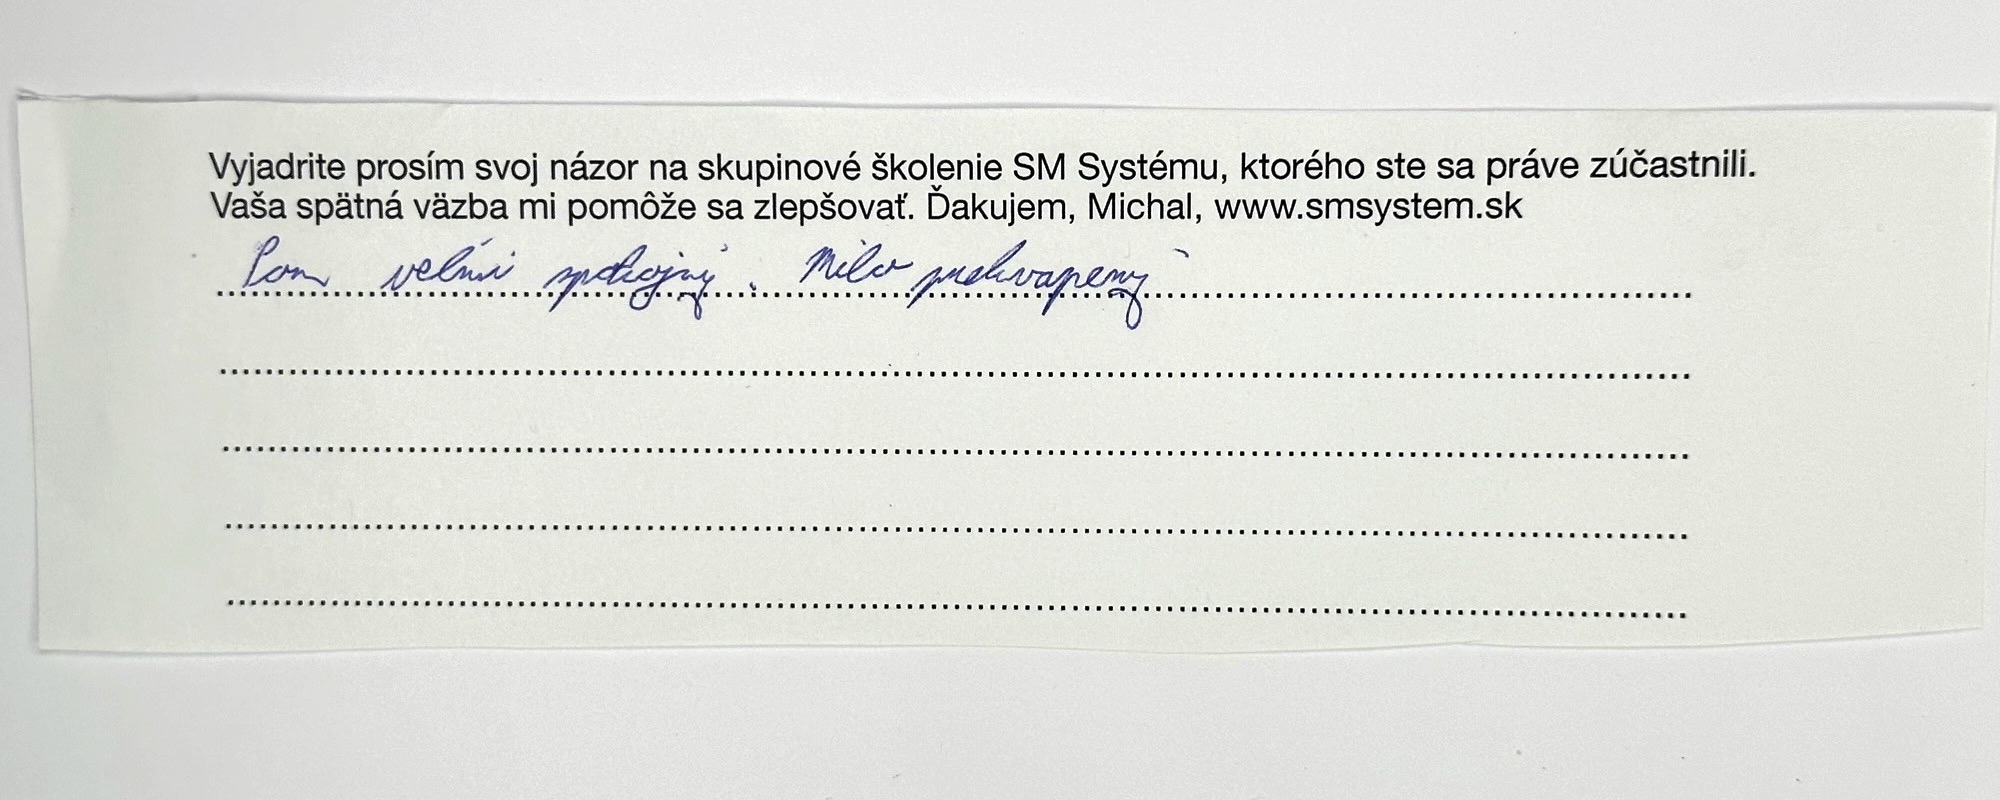 Vyjadrite prosím svoj názor na skupinové školenie SM Systému, ktorého ste sa práve zúčastnili.
Vaša spätná väzba mi pomôže sa zlepšovať. Ďakujem, Michal, www.smsystem.sk
Som veľmi spokojný. Milo prekvapený